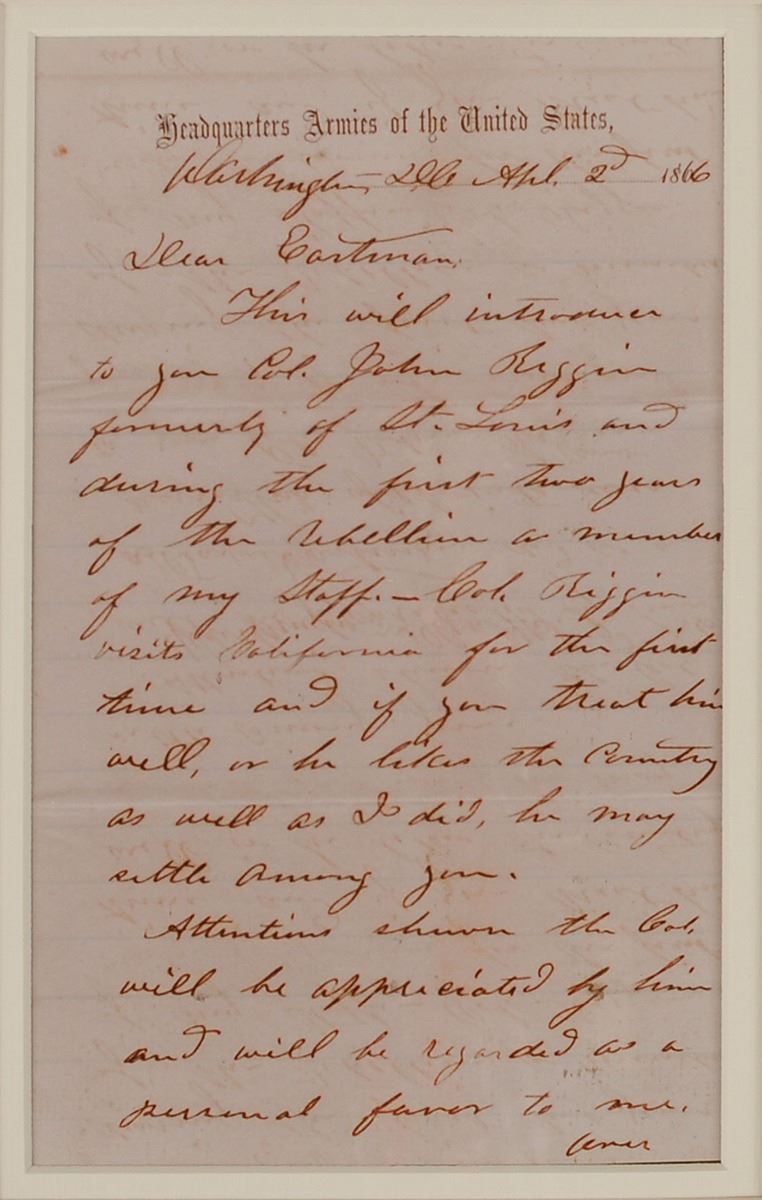 Headquarters Armies of the United States,
Washington, D.C. Apl. 2d 1866
Dear Eastman,
This will introduce
to you Col. John Riggin
formerly of St. Louis and
during the first two years
of the rebellion a member
of my Staff. — Col. Riggin
visits California for the first
time and if you treat him
well, or he likes the Country
as well as I did, he may
settle among you.
Attentions shown the Col.
will be appreciated by him
and will be regarded as a
personal favor to me.
over